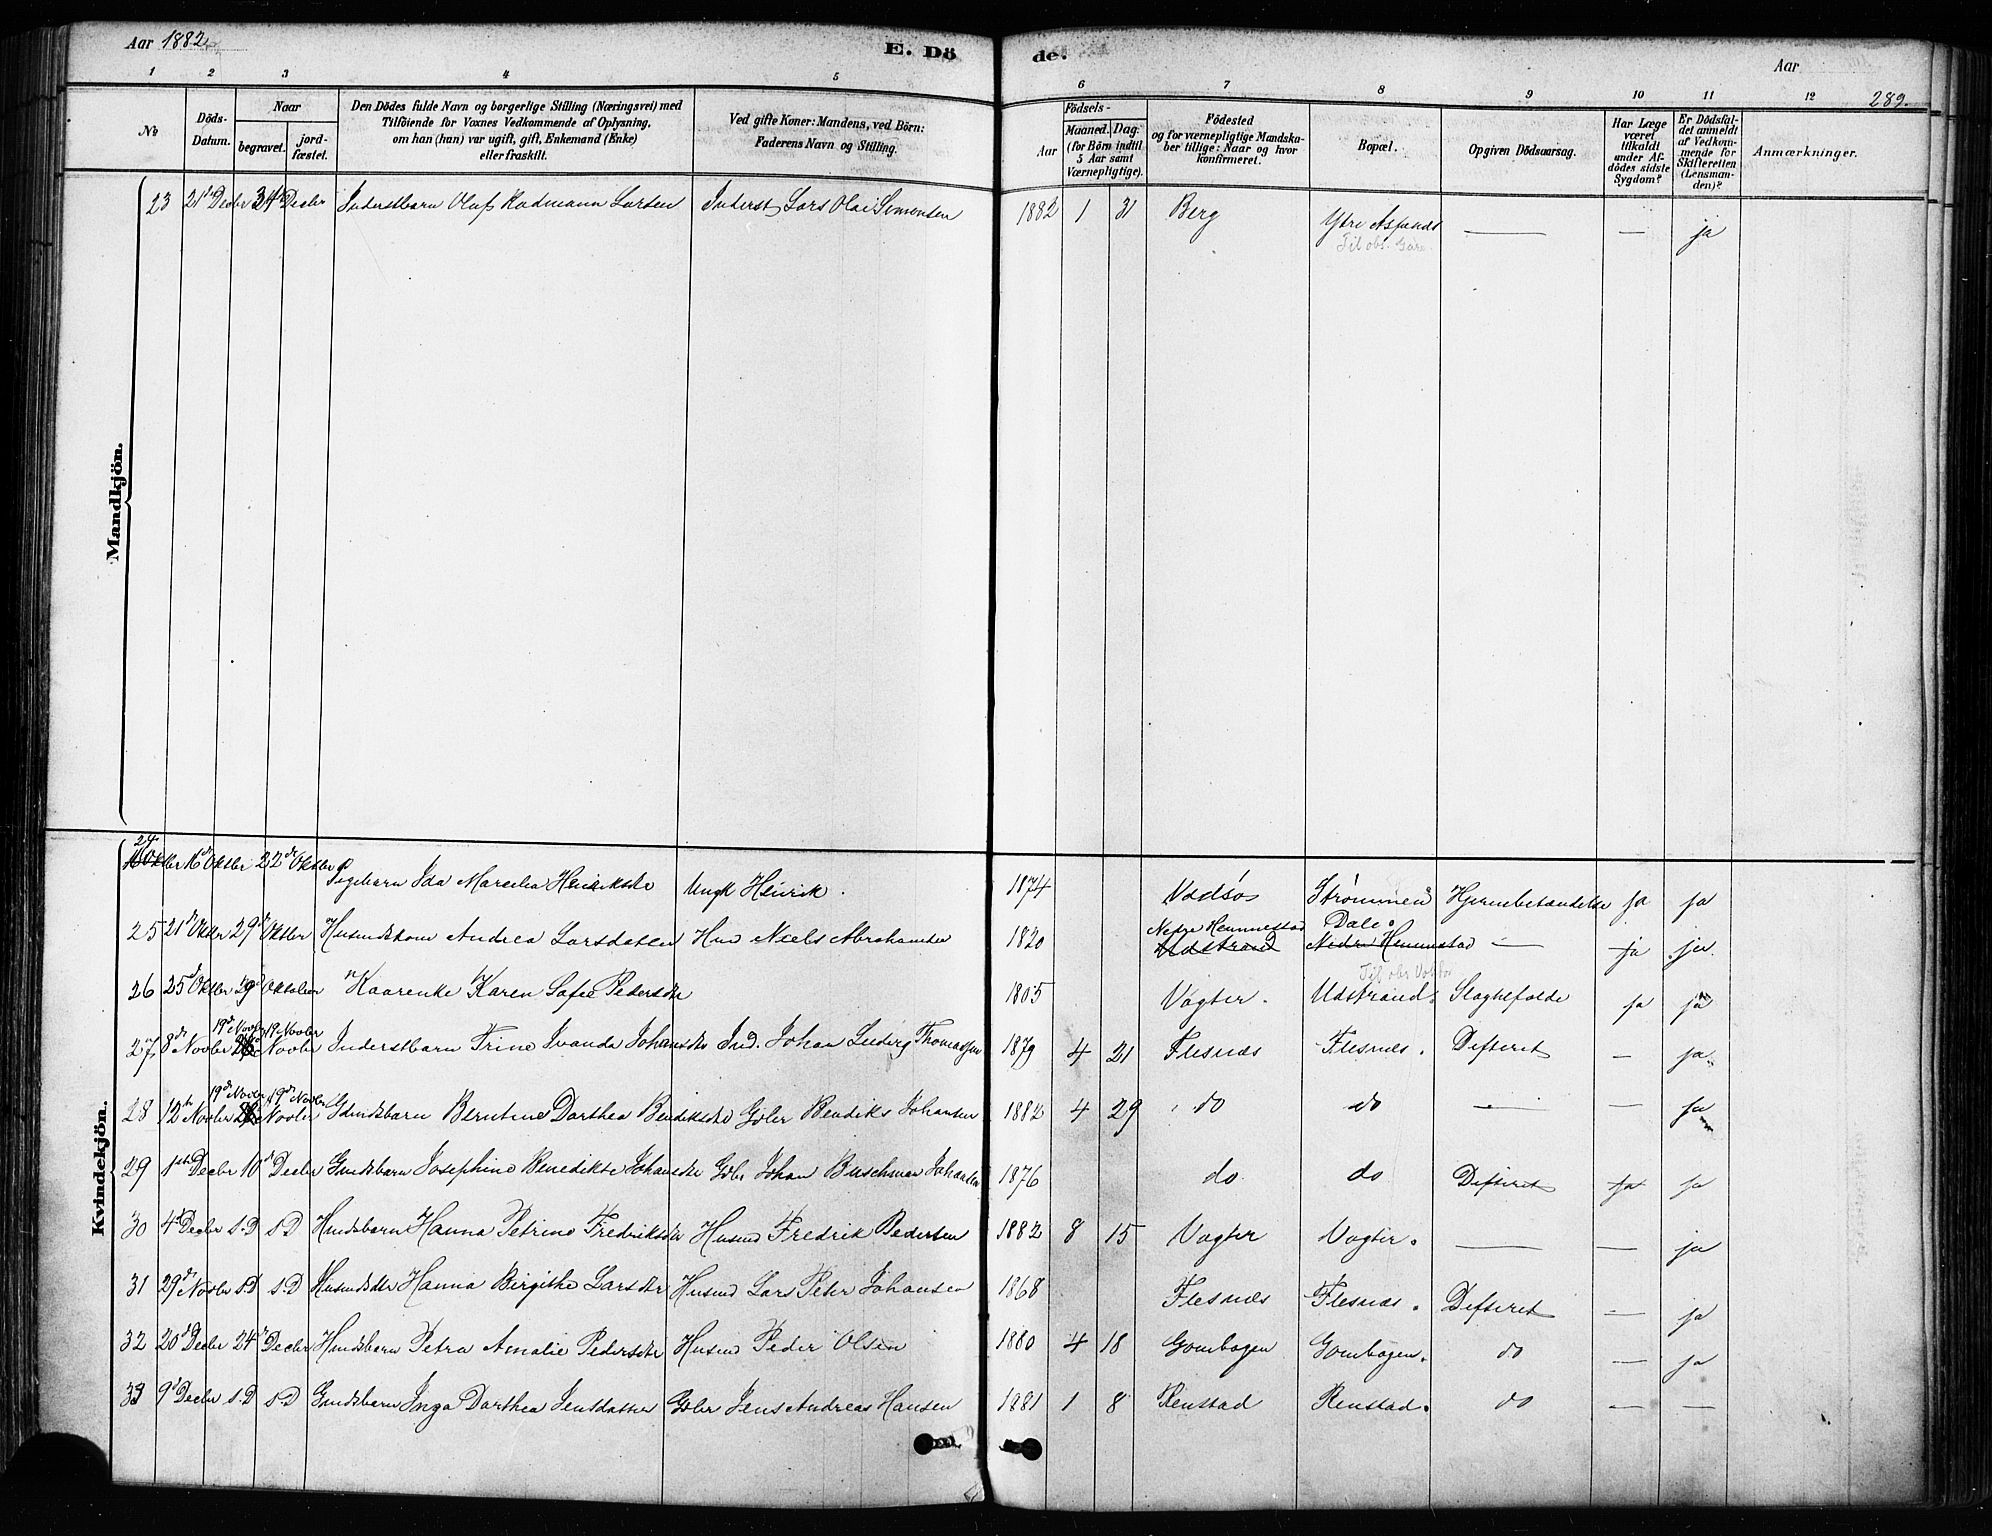 Aar 1882
E. Dö
de.
Aar
289.
1 2 3 4 5 6 7 8 9 10 11 12
No
Döds-Datum.
Naar
begravet.
jord-fæstet.
Den Dödes fulde Navn og borgerlige Stilling (Næringsvei) med
Tilföiende for Voxnes Vedkommende af Oplysning,
om han (han) var ugift, gift, Enkemand (Enke)
eller fraskilt.
Ved gifte Koner: Mandens, ved Börn:
Faderens Navn og Stilling.
Födsels-
Aar
Maaned. Dag.
(for Börn indtil
5 Aar samt
Værnepligtige).
Födested
og for værnepligtige Mandska-
ber tillige: Naar og hvor
konfirmeret.
Bopæl.
Opgiven Dödsaarsag.
Har Læge
været
tilkaldt
under Af-
dödes sidste
Sygdom?
Er Dödsfal-
det anmeldt
af Vedkom-
mende for
Skifteretten
(Lensman-
den)?
Anmærkninger.
Mandkjön.
23 21 Decbr 31 Decbr Inderstbarn Oluf Rodmann Larsen Inderst Lars Olai Simonsen 1882 1 31 Berg Ytre — — ja
Kvindekjön.
24 16de Oktbr 22de Oktbr Pigebarn Ida Marcelia Henriksdr Ungk Henrik. 1874 Vadsø Strømmen Hjernebetændelse ja ja
25 21de Oktbr 29de Oktbr Husmdskone Andrea Larsdatter Hmd Niels Abrahamsen 1820 Nedre Hemmestad Dale. — ja ja.
Udstrand Nedre Hemmestad
26 25de Oktbr 29de Oktober Kaarenke Karen Sofie Pedersdr 1805 Vagter. Udstrand. Slaghefolde ja ja
19de Novbr 19 Novbr
27 8de Novbr 26 Novbr Inderstbarn Trine Ivanda Johansdr Ind. Johan Ludvig Thomassen 1879 4 21 Flesnæs Flesnæs. Difterit — ja
19de Novbr 19de Novbr
28 12te Novbr 26 Novbr Gdmdsbarn Berntine Dorthea Bendiksdr Gdbr Bendiks Johansen 1882 4 29 do do — — ja
29 1ste Decbr 10de Decbr Gmdsbarn Josephine Benedikte Johansdr Gdbr Johan Buschman Johansen 1876 do do Difterit ja ja
30 4de Decbr s.D s.D Hmdsbarn Hanna Petrine Fredriksdr Husmd Fredrik Pedersen 1882 8 15 Vagter Vagter. — — ja
31 29de Novbr s.D s.D Husmdsdtr Hanna Birgithe Larsdtr Husmd Lars Peter Johansen 1868 Flesnæs Flesnæs. Difterit — ja
32 20de Decbr 24de Decbr Hmdsbarn Petra Amalie Pedersdtr Husmd Peder Olsen 1880 4 18 Gombogen Gombogen. do — ja
33 9de Decbr s.D s.D Gmdsbarn Inga Dorthea Jensdatter Gdbr Jens Andreas Hansen 1881 1 8 Renstad Renstad. do — —